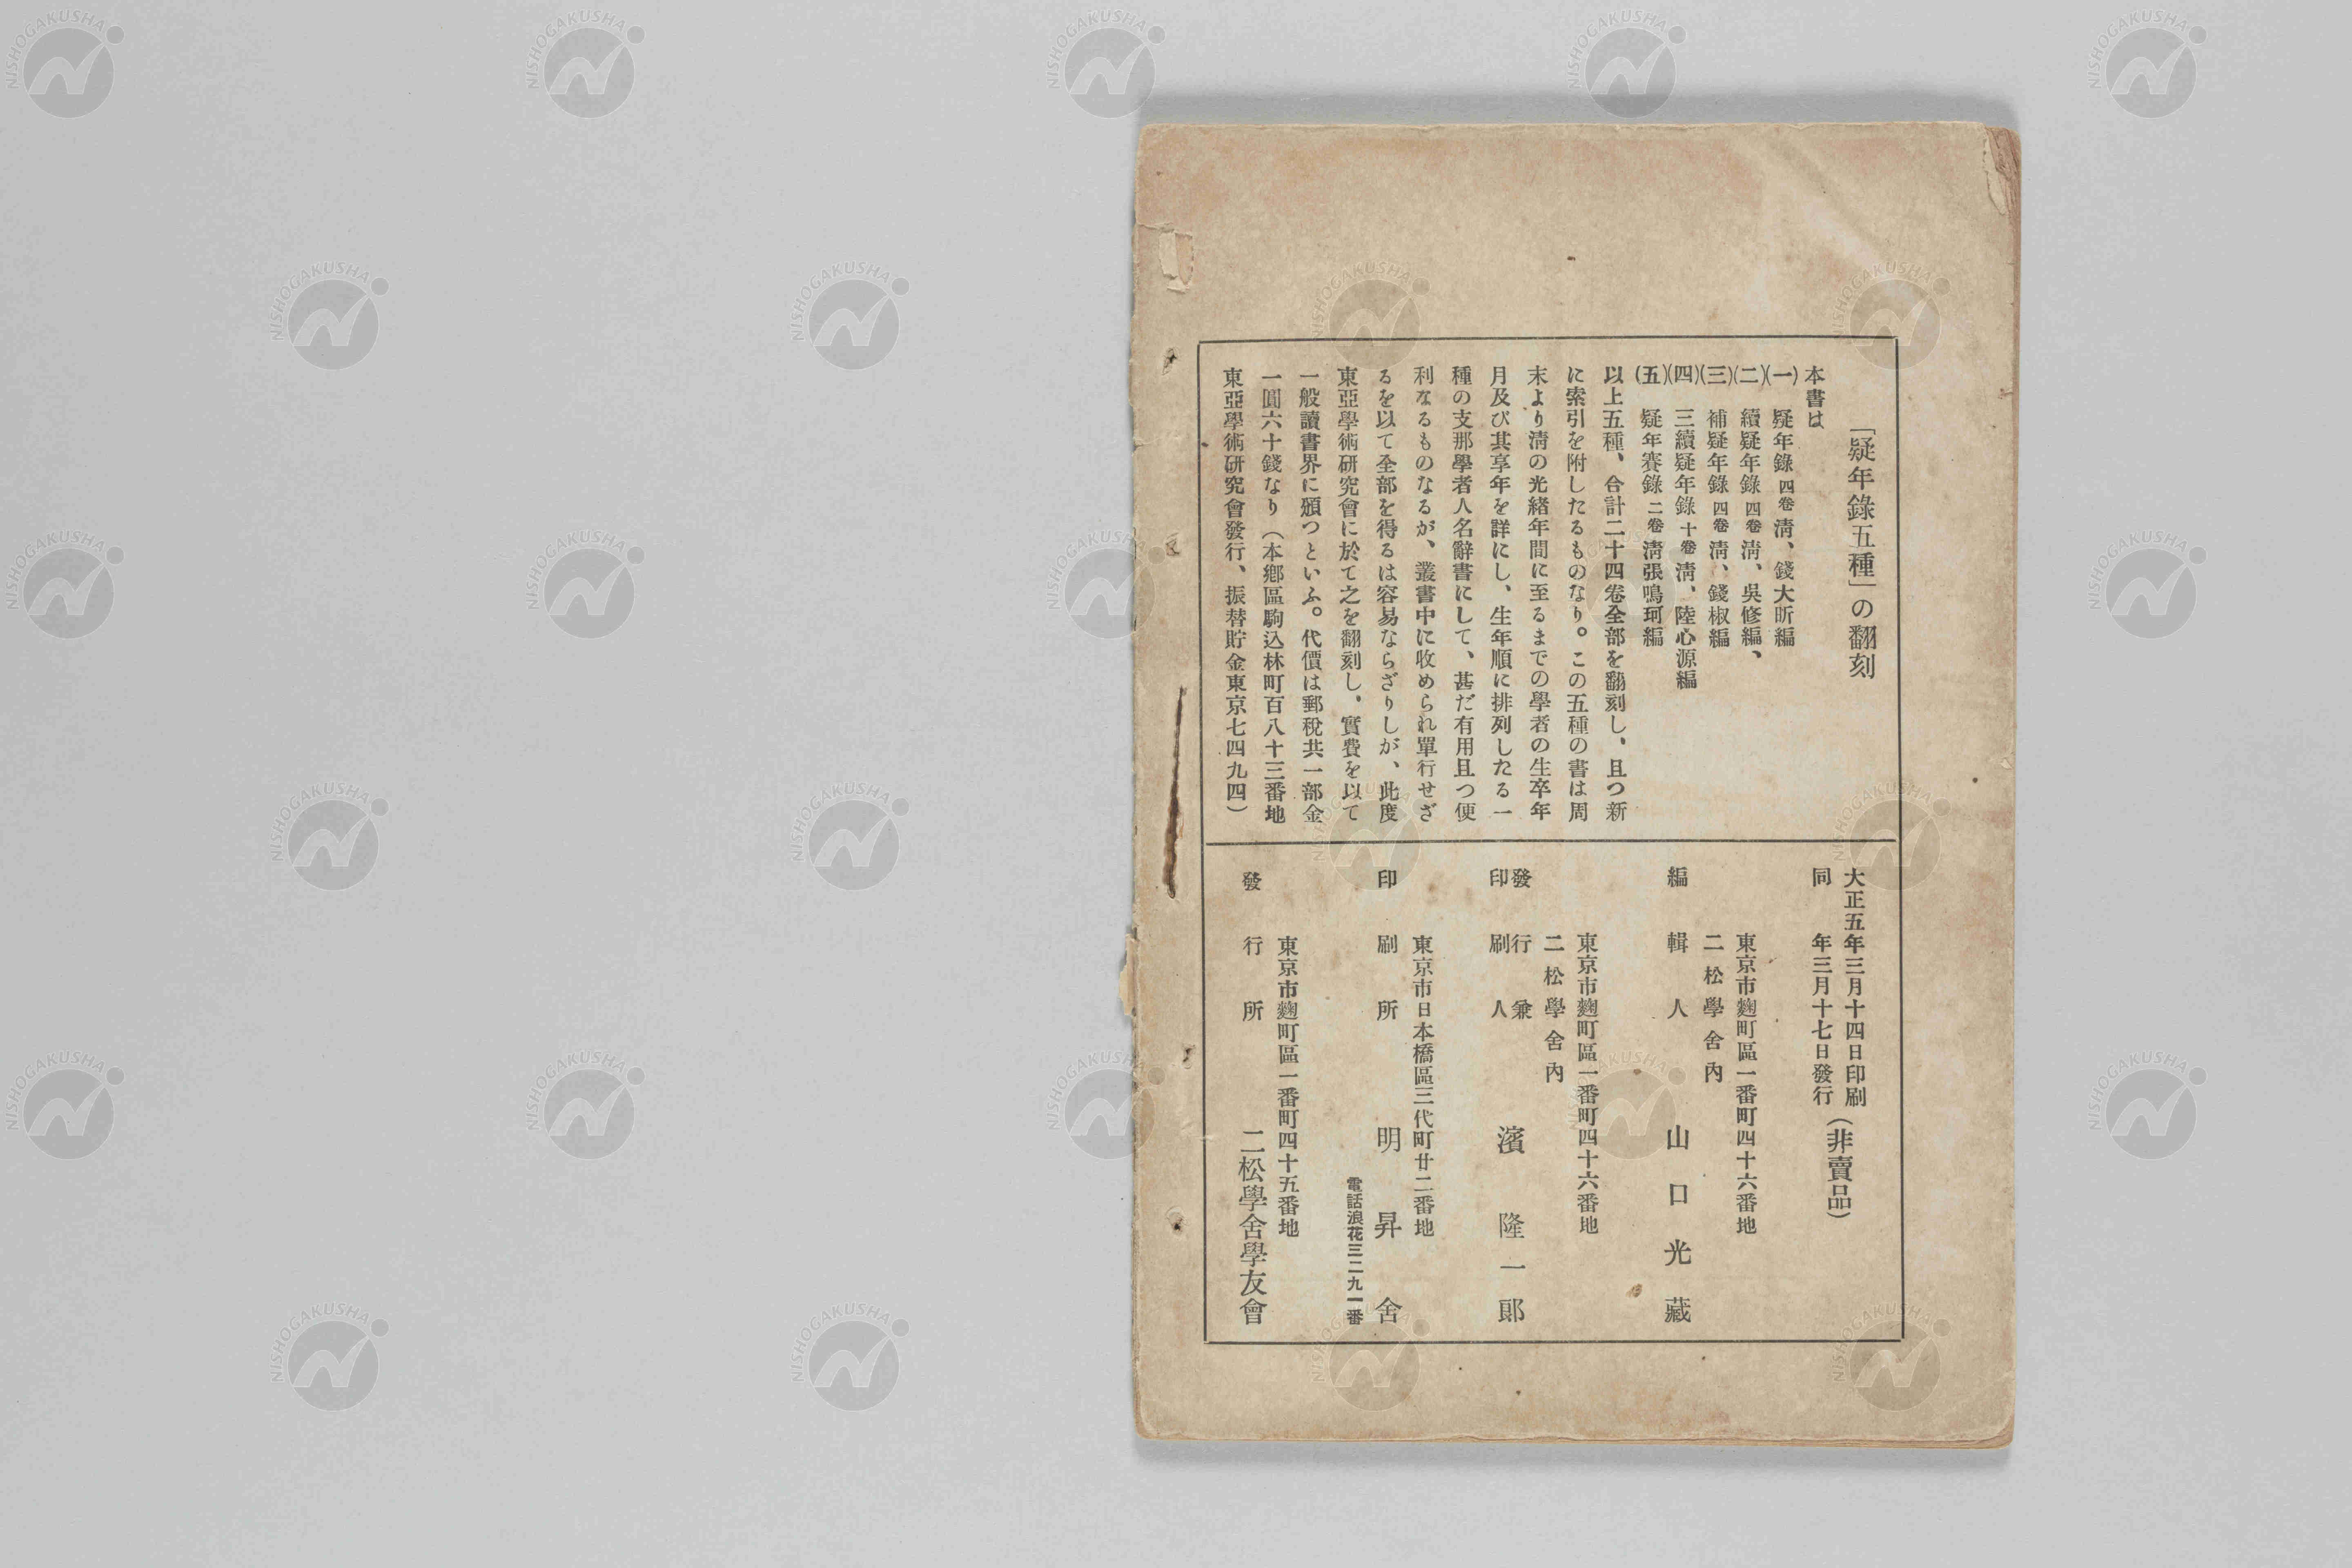 「疑年錄五種」の翻刻
本書は
(一) 疑年錄 四卷 淸、錢大昕編
(二) 續疑年錄 四卷 淸、吳修編、
(三) 補疑年錄 四卷 淸、錢椒編
(四) 三續疑年錄 十卷 淸、陸心源編
(五) 疑年賽錄 二卷 淸張鳴珂編
以上五種、合計二十四卷全部を翻刻し、且つ新
に索引を附したるものなり。この五種の書は周
末より淸の光緒年間に至るまでの學者の生卒年
月及び其享年を詳にし、生年順に排列したる一
種の支那學者人名辭書にして、甚だ有用且つ便
利なるものなるが、叢書中に收められ單行せざ
るを以て全部を得るは容易ならざりしが、此度
東亞學術硏究會に於て之を翻刻し、實費を以て
一般讀書界に頒つといふ。代價は郵稅共一部金
一圓六十錢なり（本鄕區駒込林町百八十三番地
東亞學術硏究會發行、振替貯金東京七四九四）
大正五年三月十四日印刷
同年三月十七日發行
（非賣品）
東京市麴町區一番町四十六番地
二松學舍內
編輯人 山口光藏
東京市麴町區一番町四十六番地
二松學舍內
發行兼
印刷人 濱隆一郞
東京市日本橋區三代町廿二番地
印刷所 明昇舍
電話浪花三二九一番
東京市麴町區一番町四十五番地
發行所 二松學舍學友會
NISHOGAKUSHA